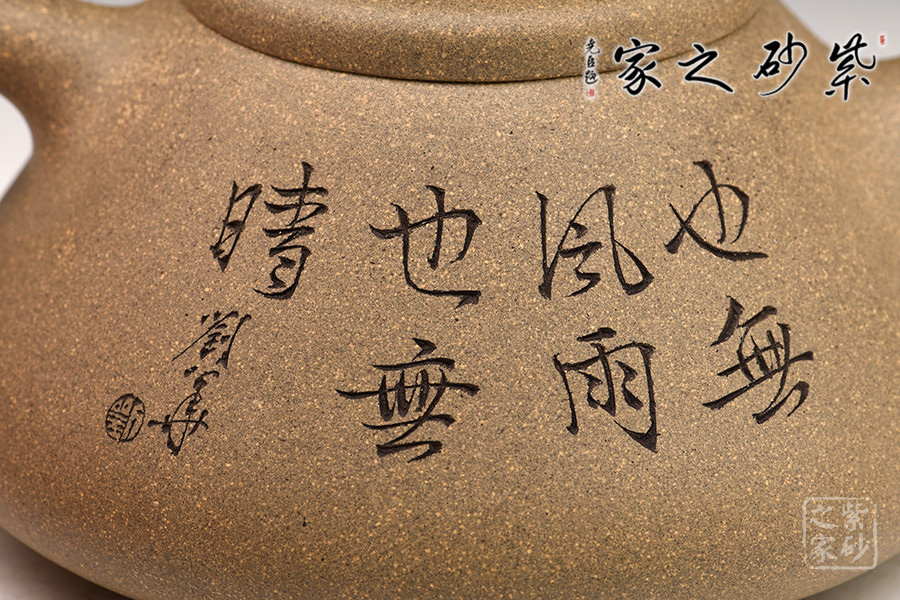 紫砂之家
也無
風雨
也無
晴
劉
紫砂
之家